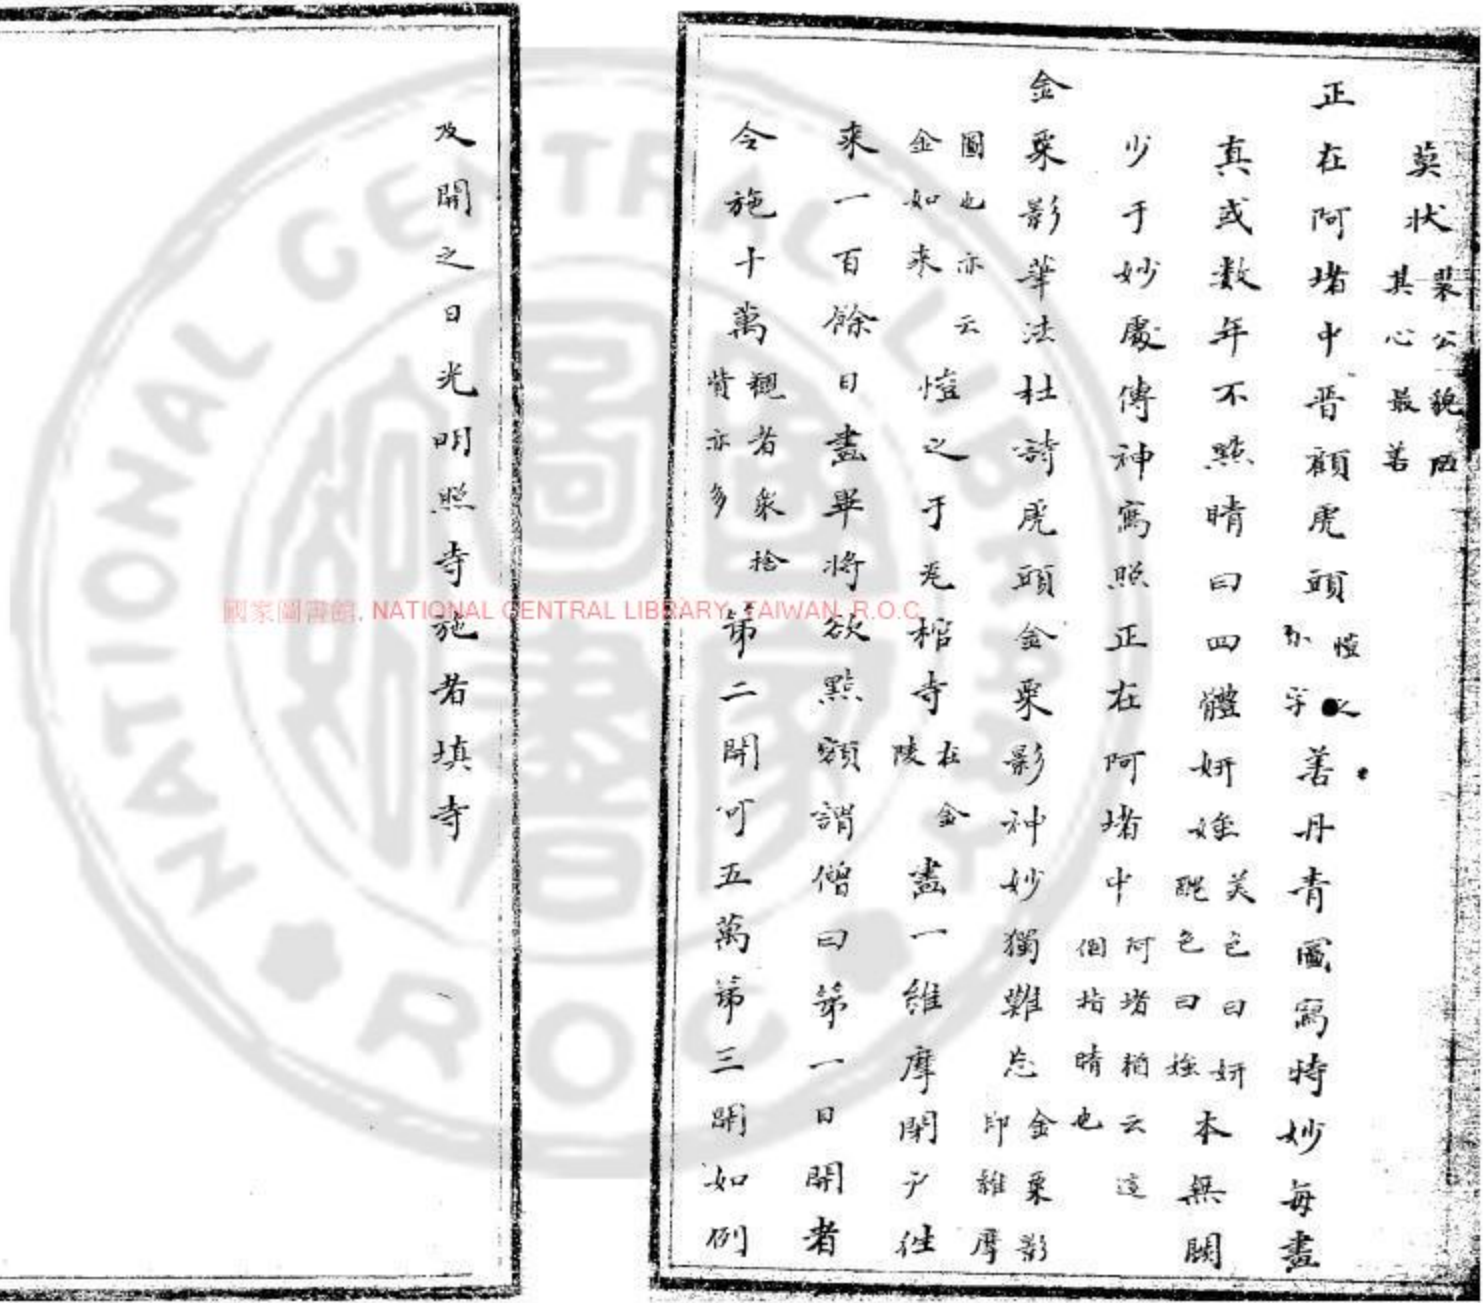 莫狀裴公貌陋其心最苦
正在阿堵中晋顧虎頭愷之小字善丹青圖寫特妙每畫
真或数年不點睛曰四體妍媸美色曰妍醜色曰媸本無闕
少于妙處傳神寫照正在阿堵中阿堵猶云這個指睛也
金粟影筆法杜詩虎頭金粟影神妙獨難忘金粟影即維摩
圖也亦云金如来愷之于瓦棺寺在金陵畫一維摩閉户往
来一百餘日畫畢將欲點額謂僧曰第一日開者
令施十萬觀者衆捨貲亦多第二開可五萬第三開如例
及開之日光明照寺施者填寺
國家圖書館, NATIONAL CENTRAL LIBRARY, TAIWAN, R.O.C.
NATIONAL CENTRAL LIBRARY
ROC